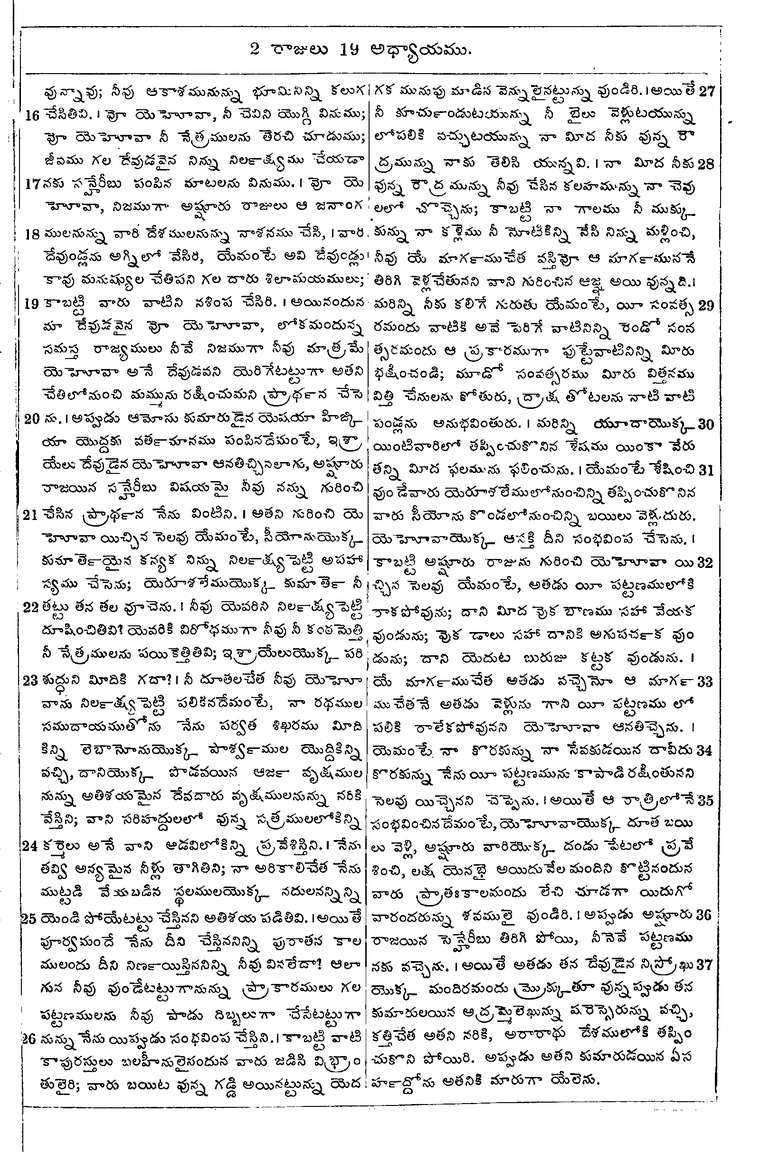 2 రాజులు 19 అధ్యాయము.
వున్నావు; నీవు ఆకాశమునున్ను భూమినిన్ని కలుగ
16 చేసితివి. । వో యెహోవా, నీ చెవిని యొగ్గి వినుము;
వో యెహోవా నీ నేత్రములను తెరచి చూడుము;
జీవము గల దేవుడవైన నిన్ను నిర్లక్ష్యము చేయడా
17 నకు సన్హేరీబు పంపిన మాటలను వినుము. । వో యె
హోవా, నిజముగా అష్షూరు రాజులు ఆ జనాంగ
18 ములనున్ను వారి దేశములనున్ను నాశనము చేసి, । వారి
దేవుండ్లను అగ్నిలో వేసిరి, యేమంటే అవి దేవుండ్లు
కావు మనుష్యుల చేతిపని గల దారు శిలామయములు;
19 కాబట్టి వారు వాటిని నశింప చేసిరి. । అయినందున
మా దేవుడవైన వో యెహోవా, లోకమందున్న
సమస్త రాజ్యములు నీవే నిజముగా నీవు మాత్రమే
యెహోవా అనే దేవుడవని యెరిగేటట్టుగా అతని
చేతిలోనుంచి మమ్మును రక్షించుమని ప్రార్థన చేసె
20 ను. । అప్పుడు ఆమోసు కుమారుడైన యెషయా హిజ్కి
యా యొద్దకు వర్తమానము పంపినదేమంటే, ఇశ్రా
యేలు దేవుడైన యెహోవా ఆనతిచ్చినలాగు, అష్షూరు
రాజయిన సన్హేరీబు విషయమై నీవు నన్ను గురించి
21 చేసిన ప్రార్థన నేను వింటిని. । అతని గురించి యె
హోవా యిచ్చిన సెలవు యేమంటే, సీయోనుయొక్క
కుమార్తెయైన కన్యక నిన్ను నిర్లక్ష్యపెట్టి అపహా
స్యము చేసెను; యెరూశలేముయొక్క కుమార్తె నీ
22 తట్టు తన తల వూచెను. । నీవు యెవరిని నిర్లక్ష్యపెట్టి
దూషించితివి? యెవరికి విరోధముగా నీవు నీ కంఠమెత్తి
నీ నేత్రములను పయికెత్తితివి; ఇశ్రాయేలుయొక్క పరి
23 శుద్ధుని మీదికి గదా? । నీ దూతలచేత నీవు యెహో
వాను నిర్లక్ష్యపెట్టి పలికినదేమంటే, నా రథముల
సముదాయముతోను నేను పర్వత శిఖరము మీది
కిన్ని లెబానోనుయొక్క పార్శ్వముల యొద్దికిన్ని
వచ్చి, దానియొక్క పొడవయిన ఆర్జ వృక్షముల
నున్ను అతిశయమైన దేవదారు వృక్షములనున్ను నరికి
వేస్తిని; వాని సరిహద్దులలో వున్న సత్రములలోకిన్ని
24 కర్మెలు అనే వాని అడవిలోకిన్ని ప్రవేశిస్తిని. । నేను
తవ్వి అన్యమైన నీళ్లు తాగితిని; నా అరికాలిచేత నేను
ముట్టడి వేయబడిన స్థలములయొక్క నదులనన్నిన్ని
25 యెండి పోయేటట్టు చేస్తినని అతిశయ పడితివి. । అయితే
పూర్వమందే నేను దీని చేస్తిననిన్ని పురాతన కాల
ములందు దీని నిర్ణయిస్తిననిన్ని నీవు వినలేదా? ఆలా
గున నీవు వుండేటట్టుగానున్ను ప్రాకారములు గల
పట్టణములను నీవు పాడు దిబ్బలుగా చేసేటట్టుగా
26 నున్ను నేను యిప్పుడు సంభవింప చేస్తిని. । కాబట్టి వాటి
కాపురస్తులు బలహీనులైనందున వారు జడిసి విభ్రాం
తులైరి; వారు బయిట వున్న గడ్డి అయినట్టున్ను యెద
గక మునుపు మాడిన వెన్నులైనట్టున్ను వుండిరి. । అయితే 27
నీ కూర్చుండుటయున్ను నీ బైలు వెళ్లుటయున్ను
లోపలికి వచ్చుటయున్ను నా మీద నీకు వున్న రౌ
ద్రమున్ను నాకు తెలిసి యున్నవి. । నా మీద నీకు 28
వున్న రౌద్రమున్ను నీవు చేసిన కలహమున్ను నా చెవు
లలో చొచ్చెను; కాబట్టి నా గాలము నీ ముక్కు
కున్ను నా కళ్లెము నీ నోటికిన్ని వేసి నిన్ను మళ్లించి,
నీవు యే మార్గముచేత వస్తివో ఆ మార్గముననే
తిరిగి వెళ్లచేతునని వాని గురించిన ఆజ్ఞ అయి వున్నది. ।
మరిన్ని నీకు కలిగే గురుతు యేమంటే, యీ సంవత్స 29
రమందు వాటికి అవే పెరిగే వాటినిన్ని రెండో సంవ
త్సరమందు ఆ ప్రకారముగా పుట్టేవాటినిన్ని మీరు
భక్షించండి; మూడో సంవత్సరము మీరు విత్తనము
విత్తి చేనులను కోతురు, ద్రాక్ష తోటలను నాటి వాటి
పండ్లను అనుభవింతురు. । మరిన్ని యూదాయొక్క 30
యింటివారిలో తప్పించుకొనిన శేషము యింకా వేరు
తన్ని మీద ఫలమును ఫలించును. । యేమంటే శేషించి 31
వుండేవారు యెరూశలేములోనుంచిన్ని తప్పించుకొనిన
వారు సీయోను కొండలోనుంచిన్ని బయిలు వెళ్లుదురు.
యెహోవాయొక్క ఆసక్తి దీని సంభవింప చేసెను. ।
కాబట్టి అష్షూరు రాజును గురించి యెహోవా యి 32
చ్చిన సెలవు యేమంటే, అతడు యీ పట్టణములోకి
రాకపోవును; దాని మీద వొక బాణము సహా వేయక
వుండును; వొక డాలు సహా దానికి అగుపర్చక వుం
డును; దాని యెదుట బురుజు కట్టక వుండును. ।
యే మార్గముచేత అతడు వచ్చెనో ఆ మార్గ 33
ముచేతనే అతడు వెళ్లును గాని యీ పట్టణము లో
పలికి రాలేకపోవునని యెహోవా ఆనతిచ్చెను. ।
యేమంటే నా కొరకున్ను నా సేవకుడయిన దావీదు 34
కొరకున్ను నేను యీ పట్టణమును కాపాడి రక్షింతునని
సెలవు యిచ్చెనని చెప్పెను. । అయితే ఆ రాత్రిలోనే 35
సంభవించినదేమంటే, యెహోవాయొక్క దూత బయి
లు వెళ్లి, అష్షూరు వారియొక్క దండు పేటలో ప్రవే
శించి, లక్ష యెనభై అయిదువేల మందిని కొట్టినందున
వారు ప్రాతఃకాలమందు లేచి చూడగా యిదుగో
వారందరున్ను శవములై వుండిరి. । అప్పుడు అష్షూరు 36
రాజయిన సెన్హేరీబు తిరిగి పోయి, నీనెవే పట్టణము
నకు వచ్చెను. । అయితే అతడు తన దేవుడైన నిస్రోఖు 37
యొక్క మందిరమందు మ్రొక్కుతూ వున్నప్పుడు తన
కుమారులయిన అద్రమ్మెలెఖున్ను షరెస్సెరున్ను వచ్చి,
కత్తిచేత అతని నరికి, అరారాథు దేశములోకి తప్పిం
చుకొని పోయిరి. అప్పుడు అతని కుమారుడయిన ఏస
ర్హద్దోను అతనికి మారుగా యేలెను.